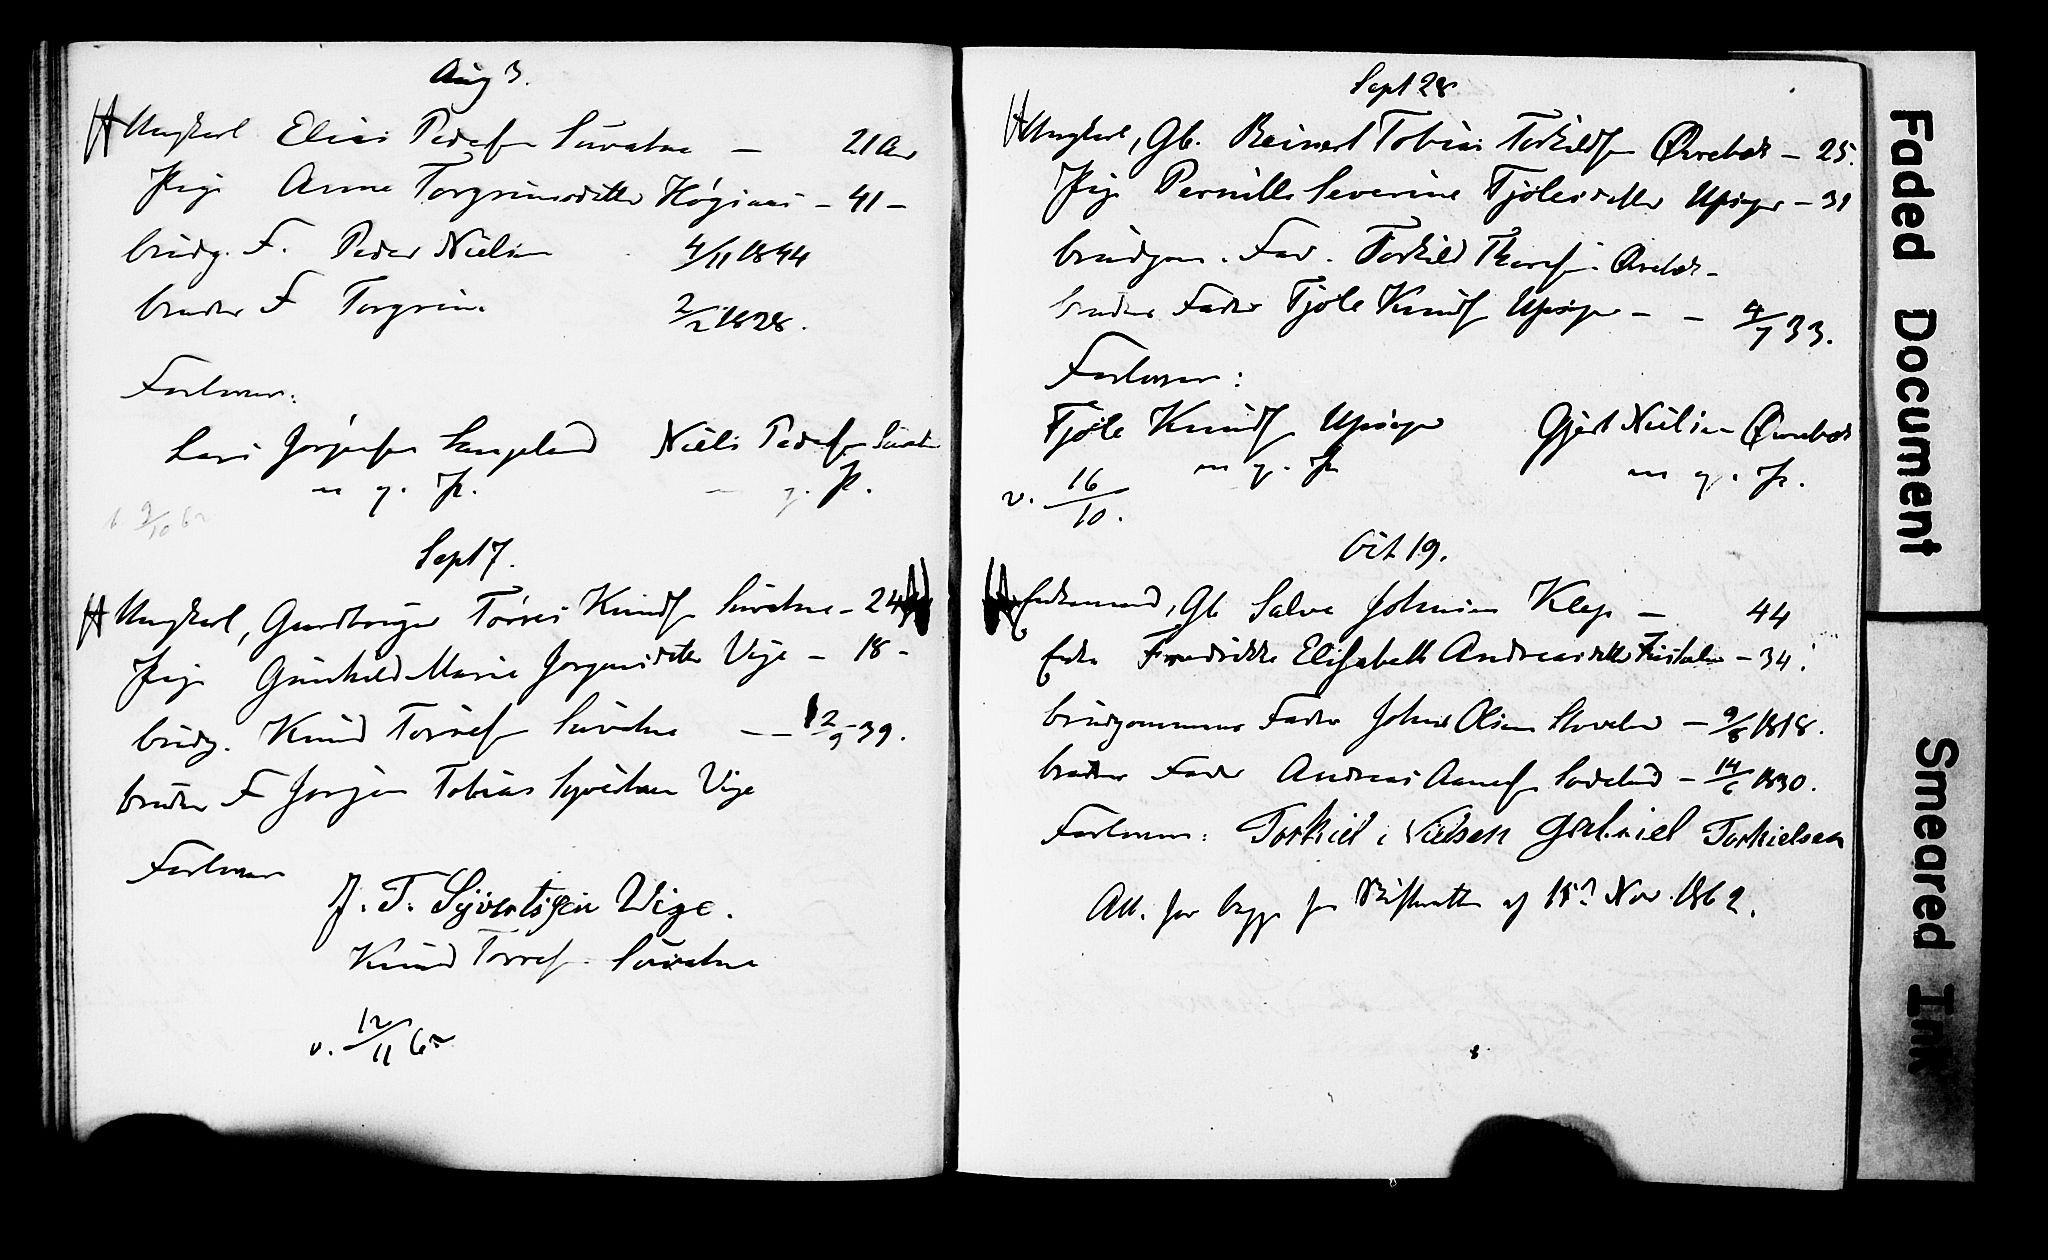 Aug 3.
Ungkarl Elias Peders. Suvatne — 21 Aar
Pige Anne Torgrimsdatter Høgaas – 41 –
brudg. F. Peder Nielsen 4/11 1844
bruden F Torgrim 2/2 1828.
Forlovere:
Lars Jørgensen Langeland Niels Peders.
m. p. P. p. P.
9/10 62
Sept 7.
Ungkarl, Gaardbruger Tørres Knuds. Suvatne – 24
Pige Gunhild Marie Jørgensdatter Vige – 18 –
brudg. Knud Tørres. Suvatne – – 12/9 – 39.
bruden F Jørgen Tobias Syvertsen Vige
Forlovere
J. T. Syvertssen Vige.
Knud Torres. Suvatne
v. 12/11 62
Sept 28
Ungkarl, Gb. Reinert Tobias Torkilds. Øvrebøk – 25.
Pige Pernille Severine Tjølesdatter – 31
brudgom. Fad. Torkild
brudens Fader Tjøle Knuds. – – 4/7 33.
Forlovere:
Tjøle Knuds. Gjert Nielsen
m. p. P. m. p. P.
v. 16/10.
Oct 19.
Enkemand, Gb Salve Johnsen Klep — 44
Enke Fredrikke Elisabeth Andreasdatter – 34.
brudgommens Fader John Olsen – 9/8 1818.
brudens Fader Andreas – 14/6 1830.
Forlovere: Torkiel Nielsen Gabriel Torkielsen
Att. for begge fra Skifteretten af 15de Nov. 1862.
Faded Document
Smeared Ink